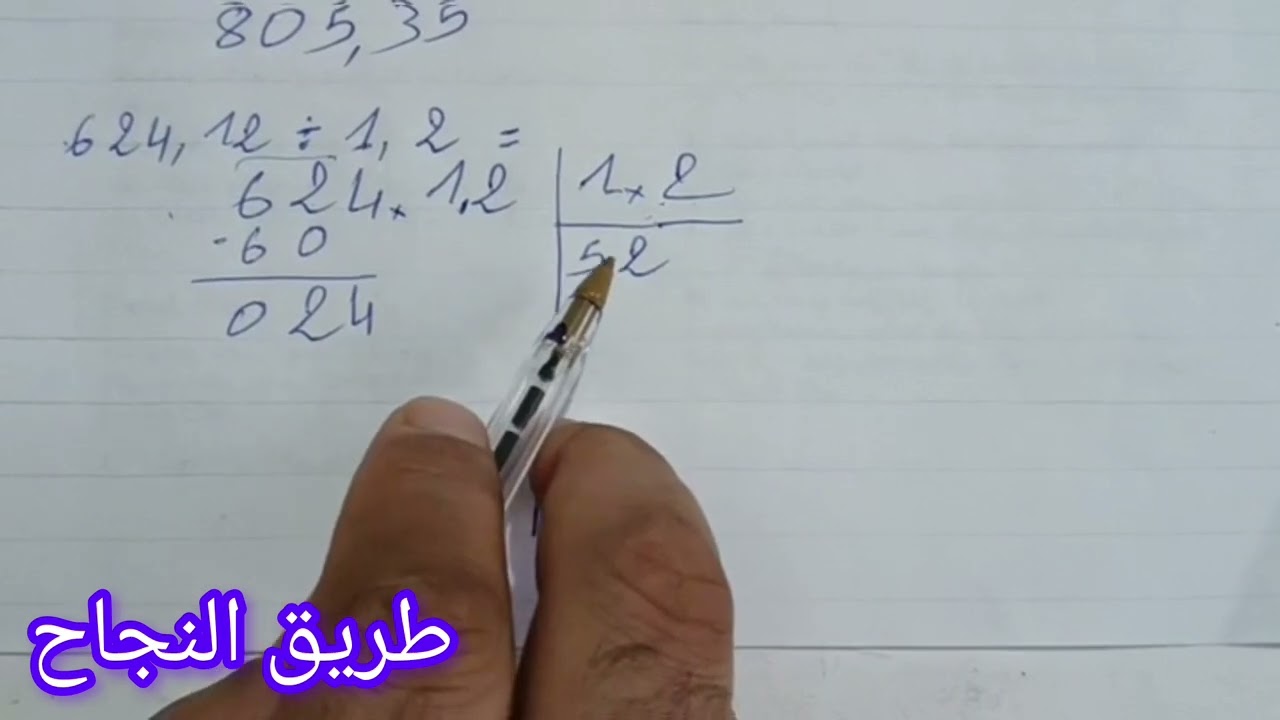 805,35
624,12 ÷ 1,2 =
624,1,2 | 1,2
-60 | 52
024
طريق النجاح